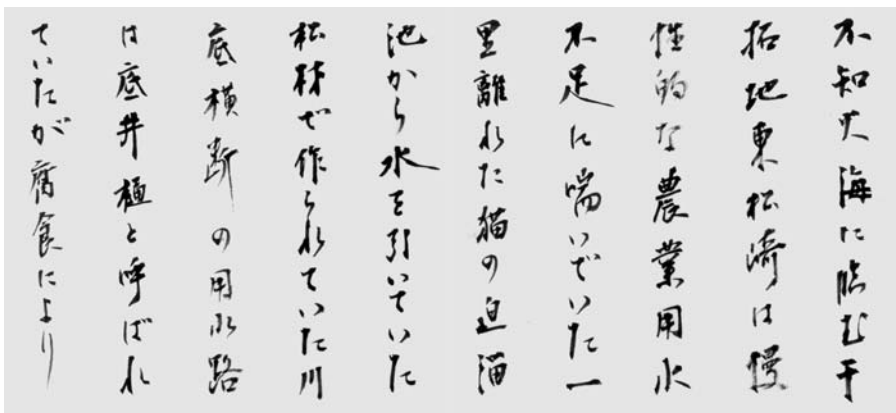 不知火海に臨む干
拓地東松崎は慢
性的な農業用水
不足に喘いでいた一
里離れた猫の迫溜
池から水を引いていた
松材で作られていた川
底横断の用水路
は底井樋と呼ばれ
ていたが腐食により